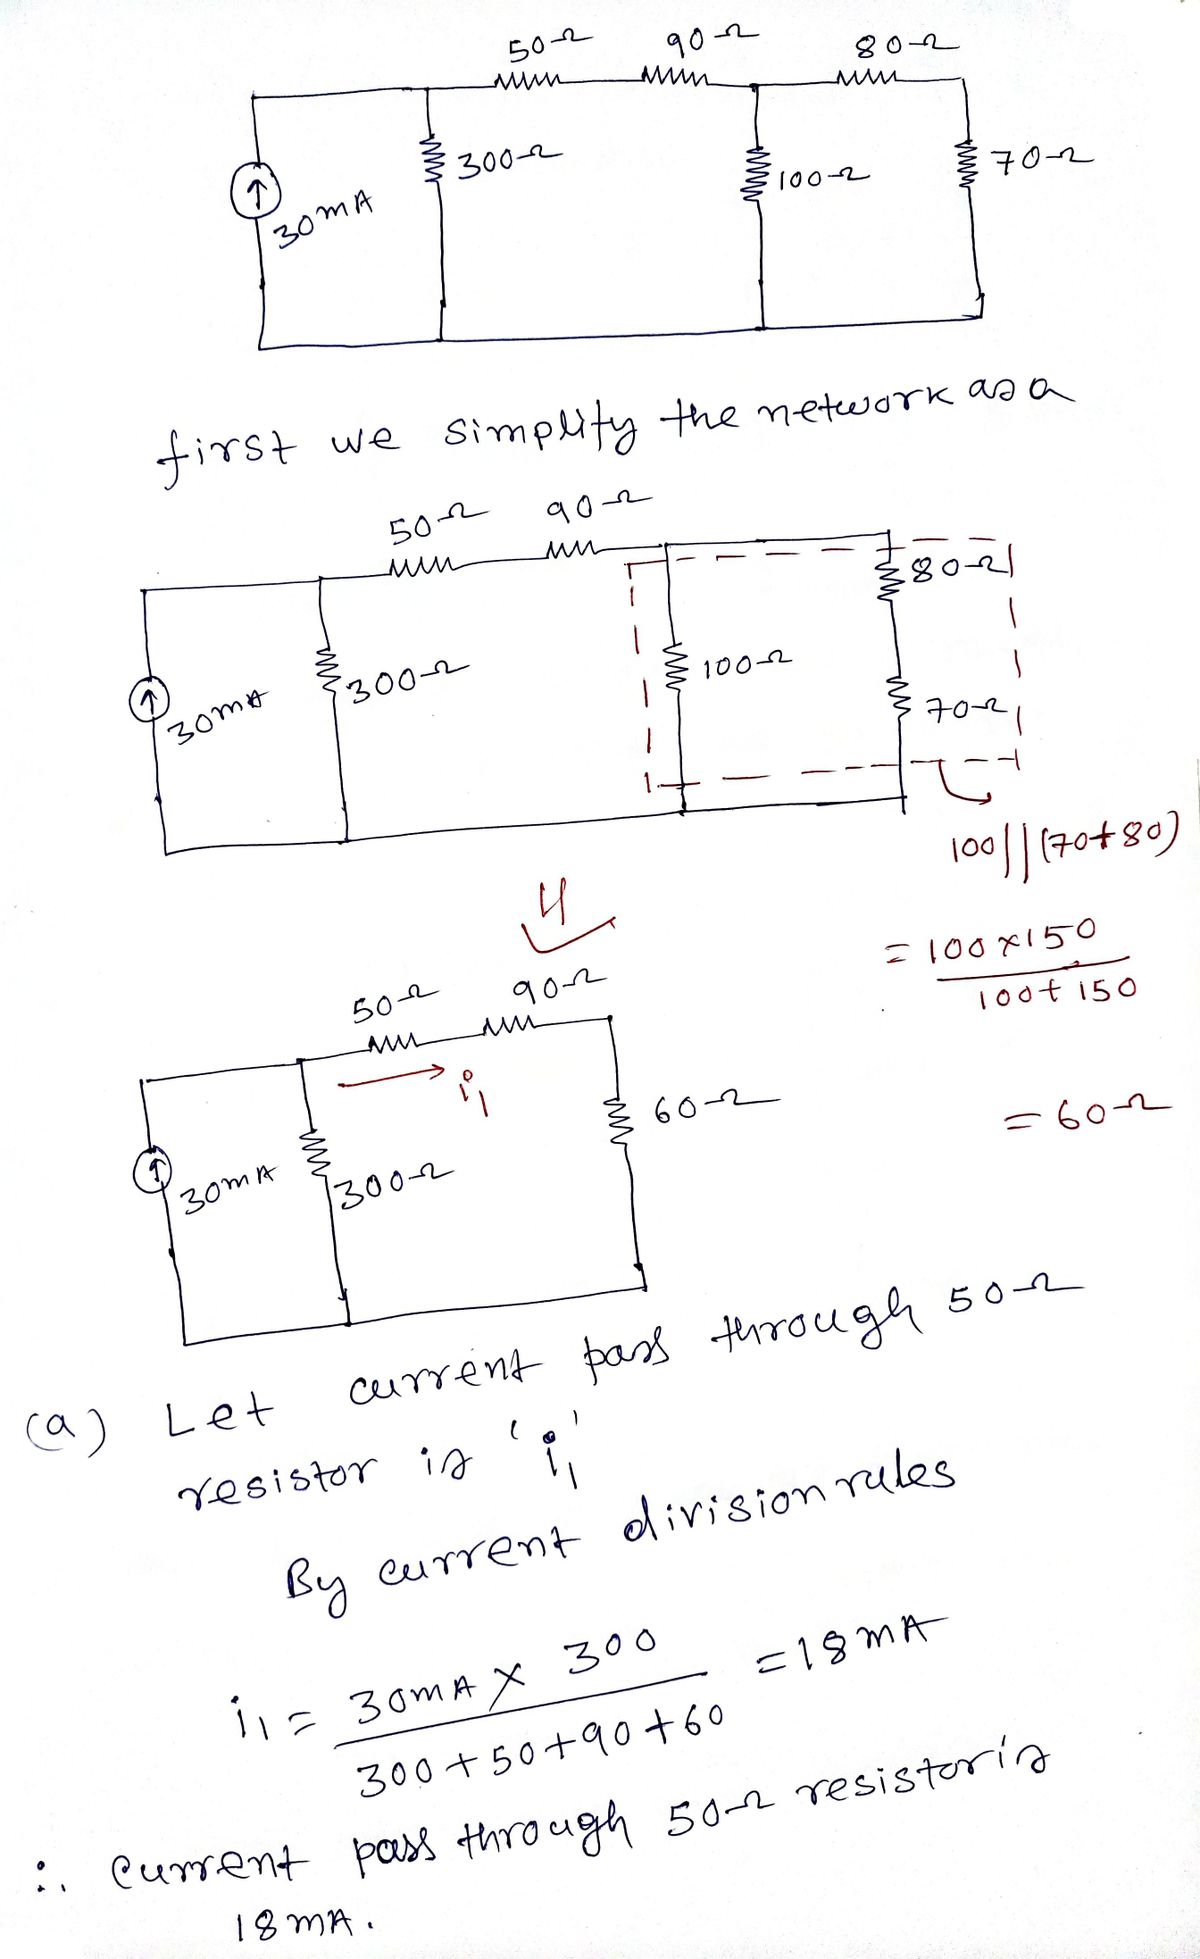 50Ω 90Ω 80Ω
300Ω 100Ω 70Ω
30mA
first we simplity the network as a
50Ω 90Ω
80Ω
300Ω 100Ω
30mA 70Ω
100||(70+80)
= 100×150
100+150
= 60Ω
50Ω 90Ω
i₁
60Ω
30mA 300Ω
(a) Let current pass through 50Ω
resistor is 'i₁'
By current division rules
i₁ = 30mA × 300 = 18mA
300+50+90+60
∴ Current pass through 50Ω resistor is
18mA.